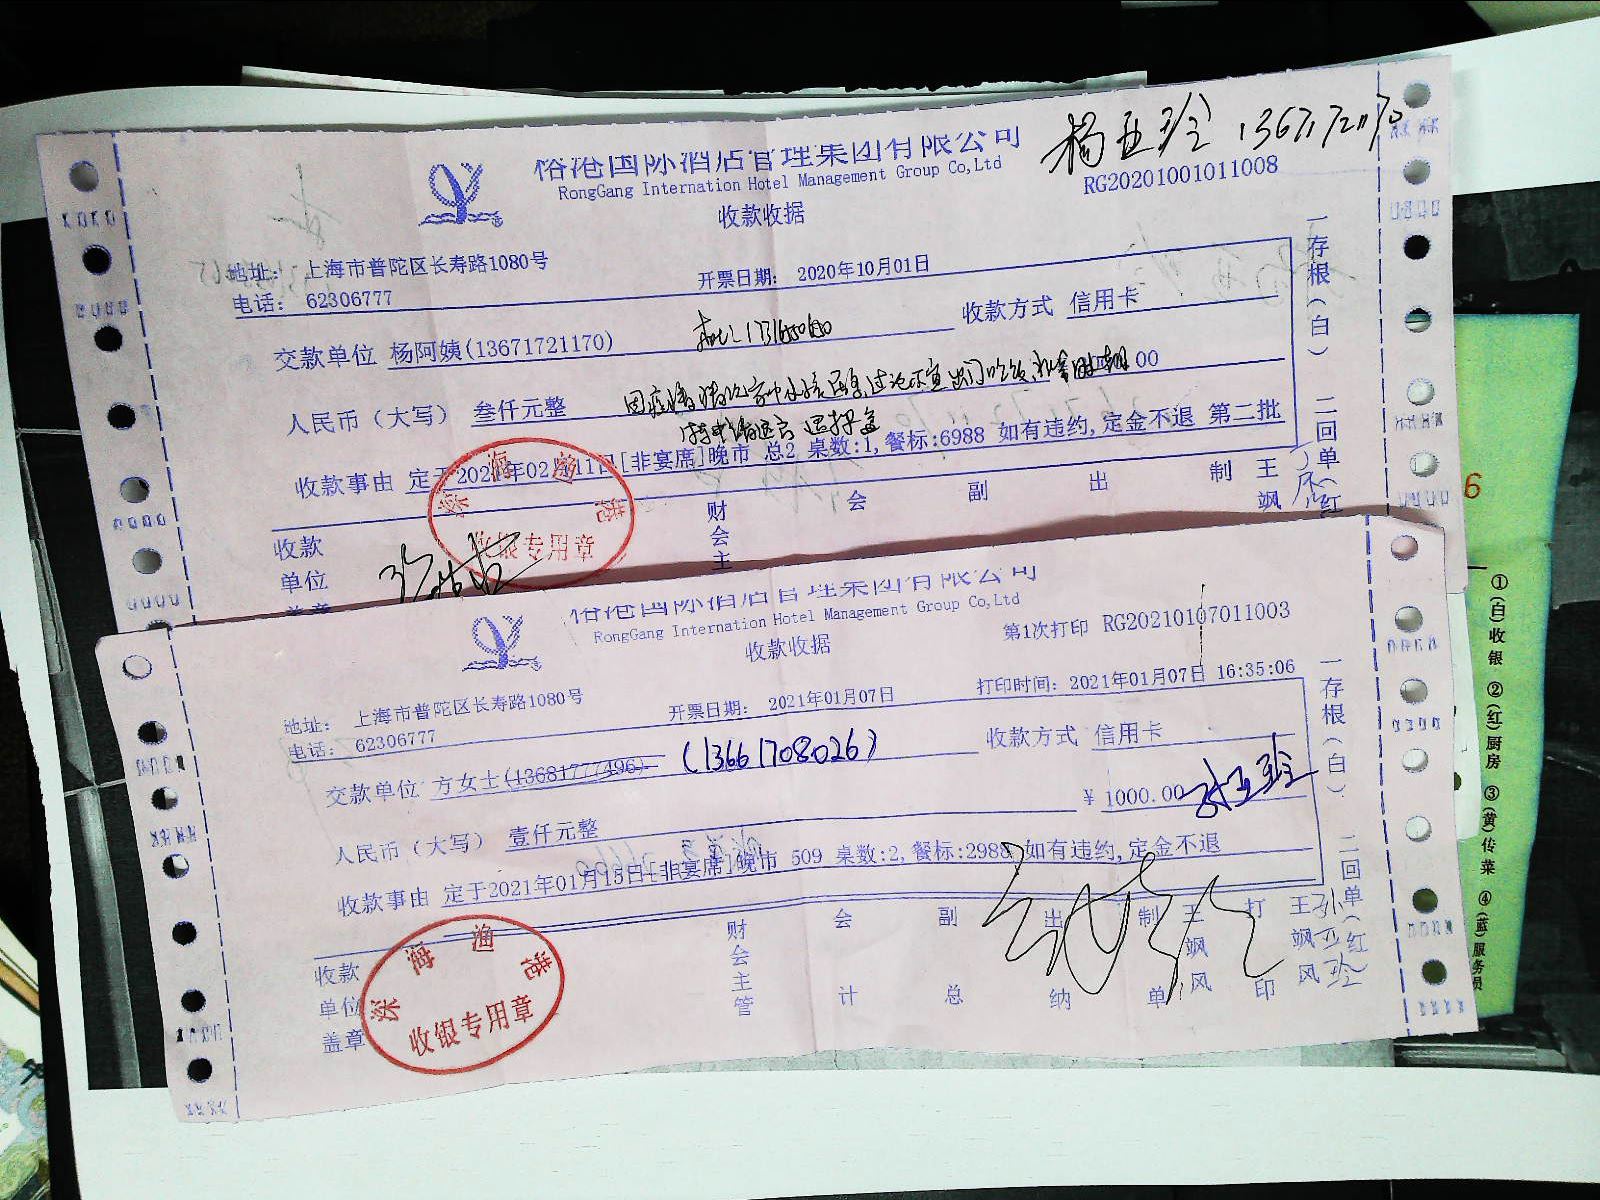 裕港国际酒店管理集团有限公司
RongGang Internation Hotel Management Group Co,Ltd
收款收据
杨亚玲 13671721170
RG20201001011008
地址: 上海市普陀区长寿路1080号
电话: 62306777
开票日期: 2020年10月01日
交款单位 杨阿姨(13671721170)
收款方式 信用卡
人民币（大写） 叁仟元整
00
收款事由 定于2021年02月11日[非宴席]晚市 总2 桌数:1,餐标:6988 如有违约,定金不退 第二批
收款单位
财会主
会 副 出 制 王飒
深海渔港
收银专用章
一存根(白) 二回单(红
裕港国际酒店管理集团有限公司
RongGang Internation Hotel Management Group Co,Ltd
收款收据
第1次打印 RG20210107011003
地址: 上海市普陀区长寿路1080号
电话: 62306777
开票日期: 2021年01月07日
打印时间: 2021年01月07日 16:35:06
交款单位 方女士(13681777496) (13661708026)
收款方式 信用卡
人民币（大写） 壹仟元整
¥ 1000.00
收款事由 定于2021年01月15日[非宴席]晚市 509 桌数:2,餐标:2988 如有违约,定金不退
收款单位盖章
财会主管
会计
副总
出纳
制单
王飒风
打印
王飒风
深海渔港
收银专用章
一存根(白) 二回单(红)
6
①(白)收银 ②(红)厨房 ③(黄)传菜 ④(蓝)服务员